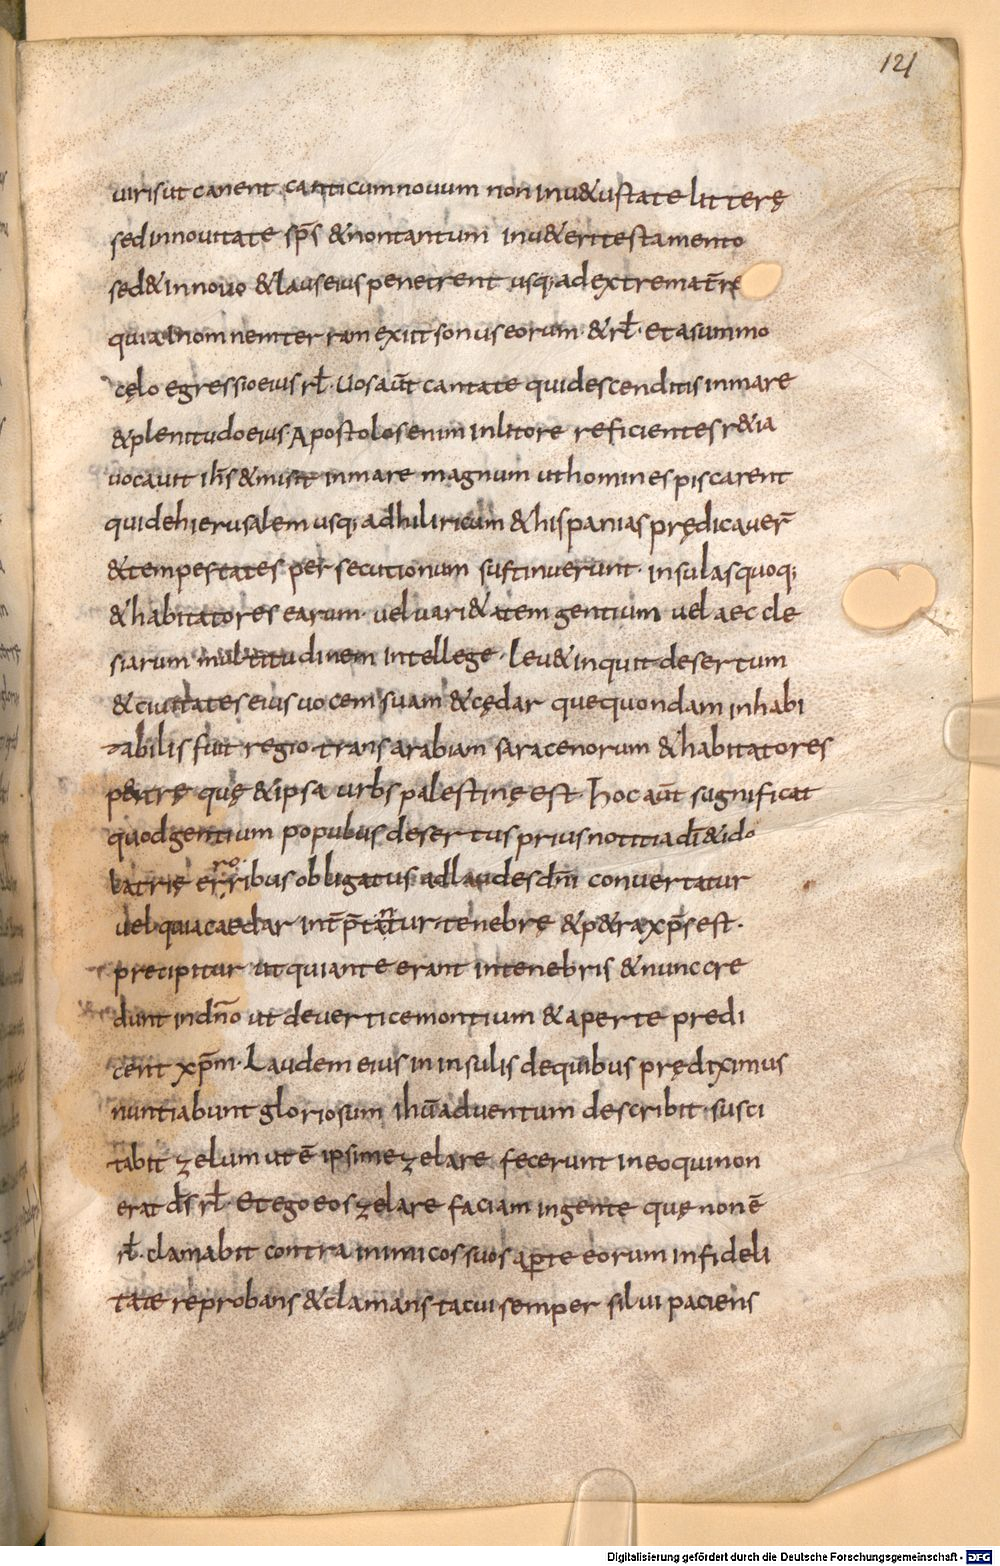 121
uiris ut canent canticum nouum non in uu&ustate litterę
sed in nouitate sp̄s & non tantum in u&eri testamento
sed & in nouo & laus eius penetrent usq; ad extrema t̄re
quia in omnem terram exiit sonus eorum · & rł · Et a summo
cęlo egressio eius rł · Uos aut̄ cantate qui descenditis in mare
& plenitudo eius · Apostolos enim in litore reficientes r&ia
uocauit ih̄s & misit in mare magnum ut homines piscarent
qui de hierusalem usq; ad hiliricum & hispanias prędicauer̄
& tempestates persecutionum sustinuerunt · insulas quoq;
& habitatores earum · uel uari&atem gentium uel aeccle
siarum multitudinem intellege · Leu& inquit desertum
& ciuitates eius uocem suam & cędar que quondam inhabi
tabilis fuit regio trans arabiam saracenorum & habitatores
p&rę quę & ipsa urbs palestinę est · hoc aut̄ significat
quod gentium populus desertus prius notitia dī & ido
latrię erroribus obligatus ad laudes dn̄i conuertatur
uel quia caedar int̄p̄tatur tenebrę & p&ra xp̄s est ·
precipitur ut qui ante erant in tenebris & nunc cre
dunt in dn̄o ut de uertice montium & aperte predi
cent xp̄m · Laudem eius in insulis de quibus prędiximus
nuntiabunt gloriosum ihū aduentum describit · susci
tabit zelum ut ē ipsi me zelare fecerunt in eo qui non
erat d̄s rł · Et ego eos zelare faciam in gente quę non ē
rł · clamabit contra inimicos suos aperte eorum infideli
tate reprobans & clamans tacui semper silui paciens
Digitalisierung gefördert durch die Deutsche Forschungsgemeinschaft - DFG